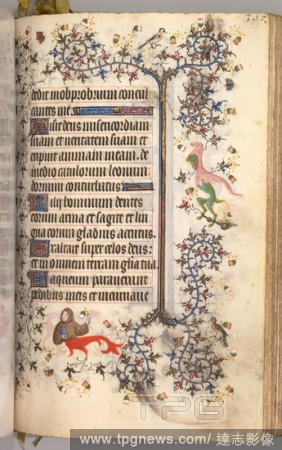 dedit in obprobrium concul
cantes me.
Misit deus misericordiam
suam et veritatem suam et
eripuit animam meam. de
medio catulorum leonum
dormivi conturbatus
Filii hominum dentes
eorum arma et sagitte et lin
gua eorum gladius acutus.
Exaltare super celos deus:
et in omnem terram gloria tua.
Laqueum paraverunt
pedibus meis et incurvave
TPG
www.tpgnews.com/ 達志影像